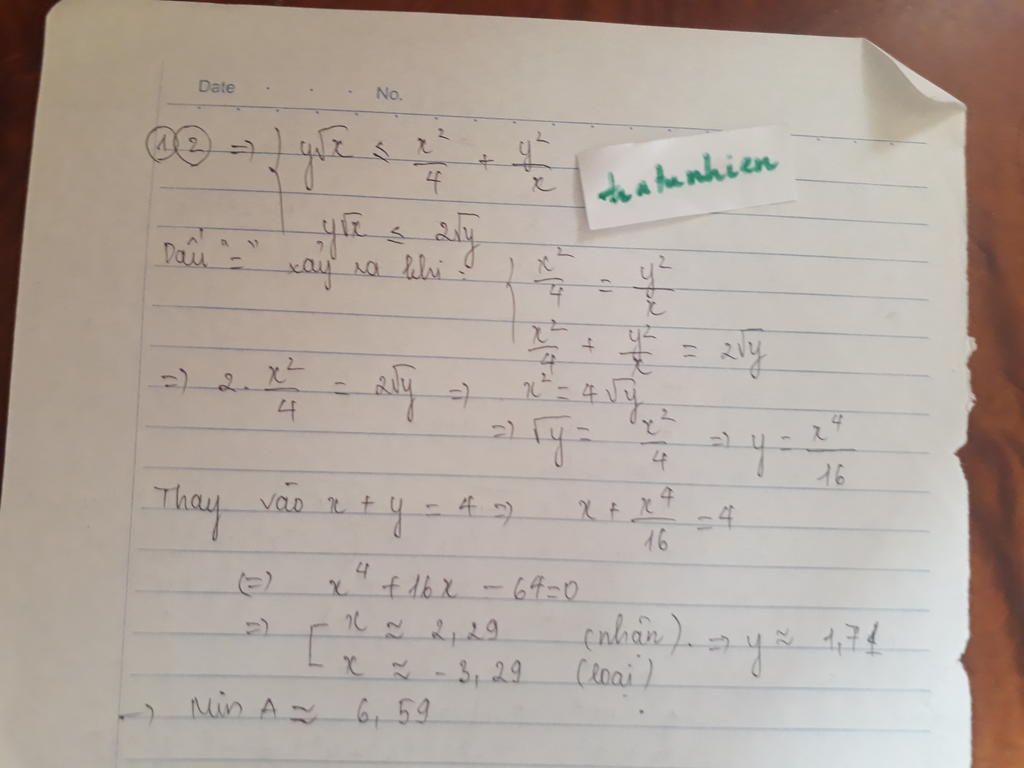 Date . . . No.
①② => { y√x ≤ x²/4 + y²/x
tratunhien
y√x ≤ 2√y
Dấu "=" xảy ra khi: { x²/4 = y²/x
x²/4 + y²/x = 2√y
=> 2. x²/4 = 2√y => x² = 4√y
=> √y = x²/4 => y = x⁴/16
Thay vào x + y = 4 => x + x⁴/16 = 4
(=) x⁴ + 16x - 64 = 0
=> [ x ≈ 2,29 (nhận). => y ≈ 1,71
x ≈ -3,29 (loại)
-> Min A ≈ 6,59